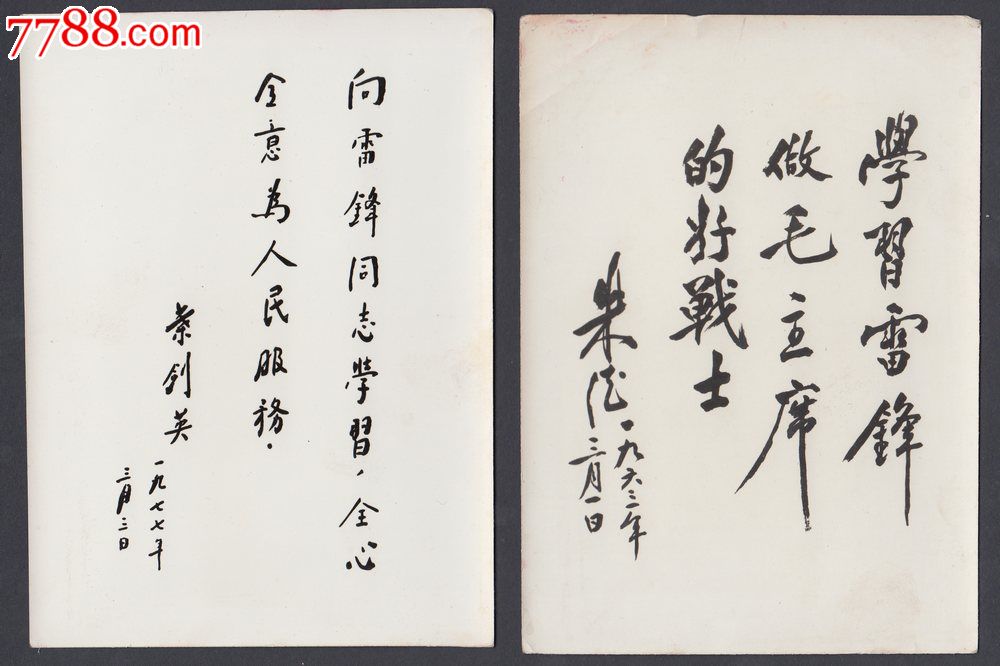 7788.com
向雷鋒同志學習，全心
全意為人民服務。
葉劍英
一九七七年
三月三日
學習雷鋒
做毛主席
的好戰士
朱德
一九六三年
三月一日